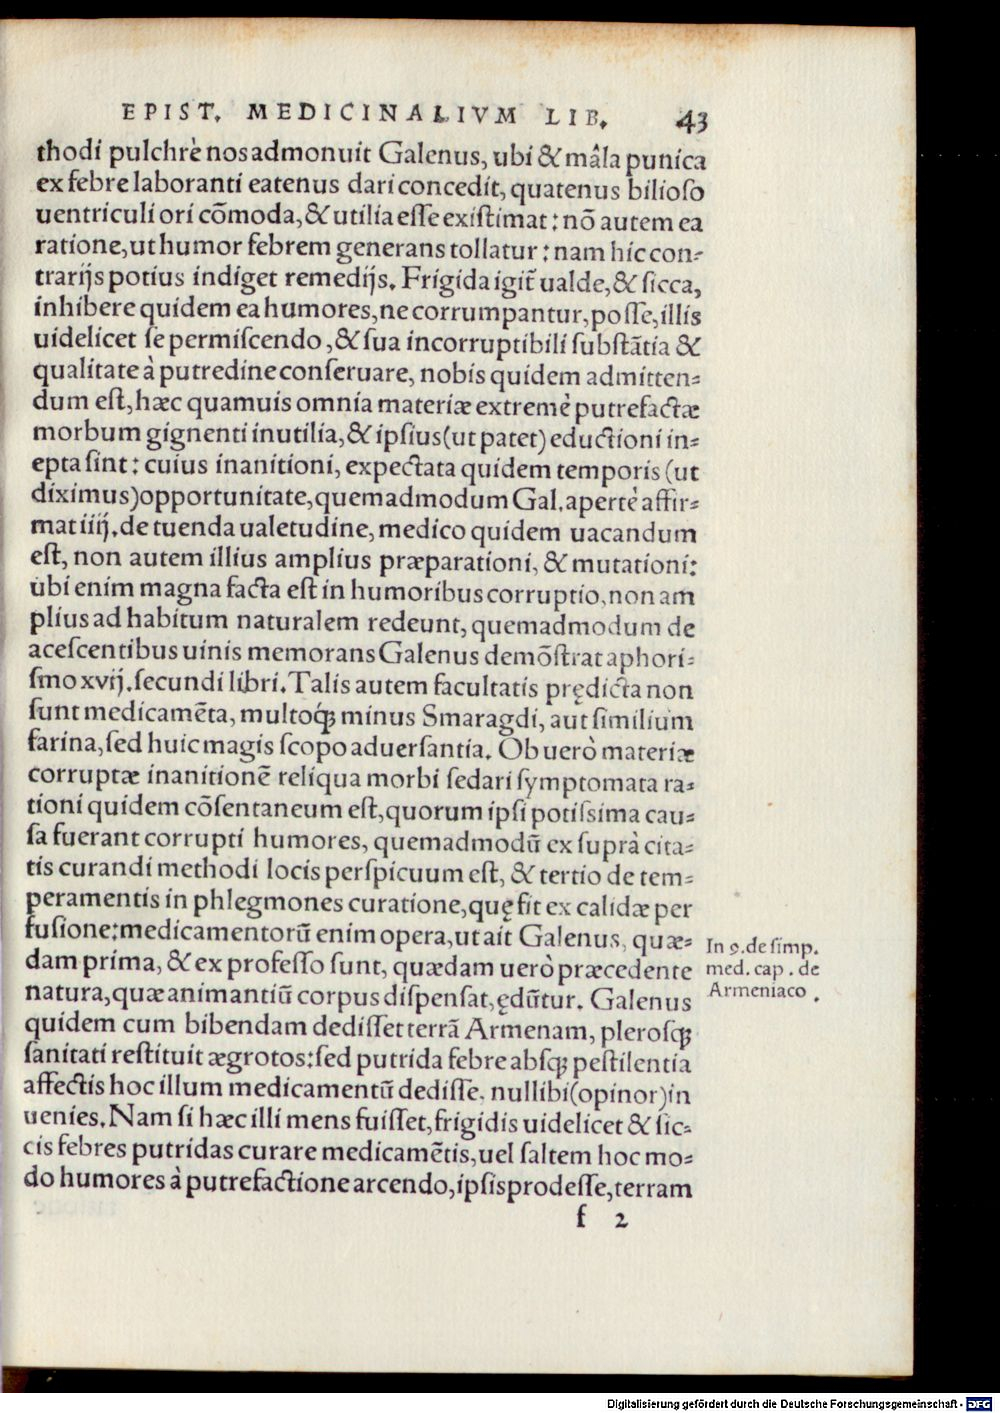 EPIST. MEDICINALIVM LIB. 43
thodi pulchrè nos admonuit Galenus, ubi & mâla punica
ex febre laboranti eatenus dari concedit, quatenus bilioſo
uentriculi ori cõmoda, & utilia eſſe exiſtimat: nõ autem ea
ratione, ut humor febrem generans tollatur: nam hic con-
trarijs potius indiget remedijs. Frigida igit̃ ualde, & ſicca,
inhibere quidem ea humores, ne corrumpantur, poſſe, illis
uidelicet ſe permiſcendo, & ſua incorruptibili ſubſtãtia &
qualitate à putredine conſeruare, nobis quidem admitten-
dum eſt, hæc quamuis omnia materiæ extremè putrefactæ
morbum gignenti inutilia, & ipſius (ut patet) eductioni in-
epta ſint: cuius inanitioni, expectata quidem temporis (ut
diximus) opportunitate, quemadmodum Gal. apertè affir-
mat iiij. de tuenda ualetudine, medico quidem uacandum
eſt, non autem illius amplius præparationi, & mutationi:
ubi enim magna facta eſt in humoribus corruptio, non am
plius ad habitum naturalem redeunt, quemadmodum de
aceſcentibus uinis memorans Galenus demõſtrat aphori-
ſmo xvij. ſecundi libri. Talis autem facultatis prędicta non
ſunt medicamẽta, multoq́; minus Smaragdi, aut ſimilium
farina, ſed huic magis ſcopo aduerſantia. Ob uerò materiæ
corruptæ inanitionẽ reliqua morbi ſedari ſymptomata ra-
tioni quidem cõſentaneum eſt, quorum ipſi potiſsima cau-
ſa fuerant corrupti humores, quemadmodũ ex ſuprà cita-
tis curandi methodi locis perſpicuum eſt, & tertio de tem-
peramentis in phlegmones curatione, quę fit ex calidæ per
fuſione: medicamentorũ enim opera, ut ait Galenus, quæ-
dam prima, & ex profeſſo ſunt, quædam uerò præcedente
natura, quæ animantiũ corpus diſpenſat, ędũtur. Galenus
quidem cum bibendam dediſſet terrã Armenam, pleroſq;
ſanitati reſtituit ægrotos: ſed putrida febre abſq; peſtilentia
affectis hoc illum medicamentũ dediſſe, nullibi (opinor) in
uenies. Nam ſi hæc illi mens fuiſſet, frigidis uidelicet & ſic-
cis febres putridas curare medicamẽtis, uel ſaltem hoc mo-
do humores à putrefactione arcendo, ipſis prodeſſe, terram
f 2
In 9. de ſimp.
med. cap. de
Armeniaco.
Digitalisierung gefördert durch die Deutsche Forschungsgemeinschaft - DFG